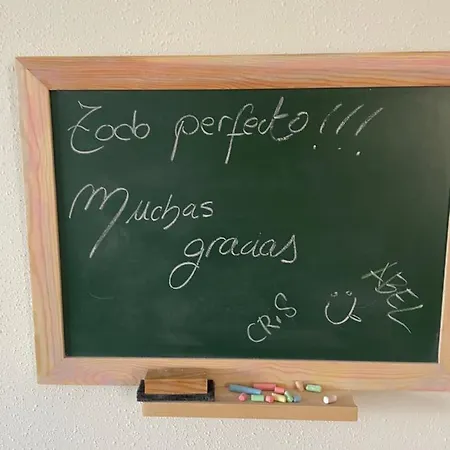 Todo perfecto!!!
Muchas
gracias
CRIS
ABEL